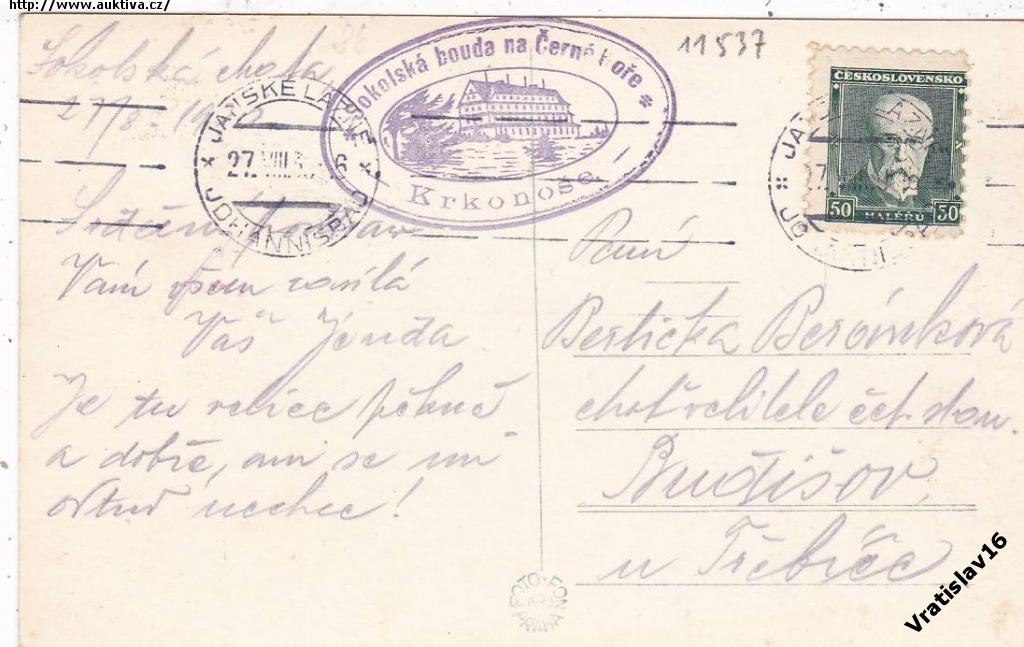 http://www.auktiva.cz/
Sokolská chata
27/8
Sokolská bouda na Černé Hoře
Krkonoše
11537
JANSKÉ LÁZNĚ
27. VIII. 6
JOHANNISBAD
ČESKOSLOVENSKO
50 HALÉŘŮ 50
Srdečný pozdrav
Vám všem zasílá
Váš Jenda
Je tu velice pěkně
a dobře, ani se mi
odtud nechce!
Paní
Berónková
choť velitele čet. stan.
Budišov
u Třebíče
FOTO-FON
PRAHA
Vratislav16